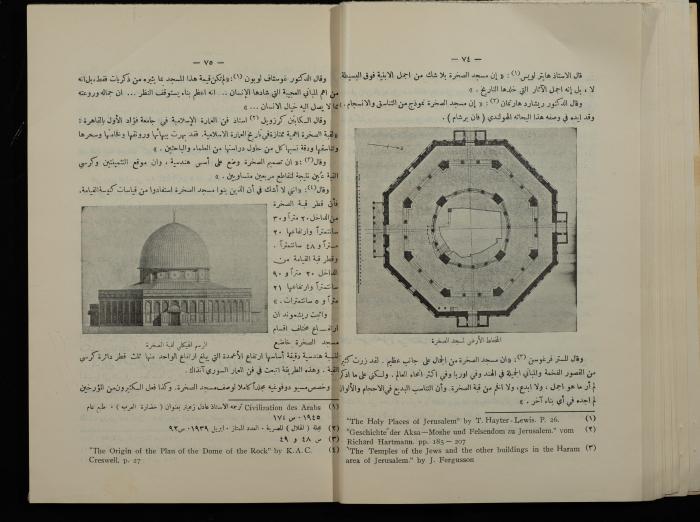 — ٧٤ —
قال الاستاذ هايتر لويس (١) : « إن مسجد الصخرة بلا شك من اجمل الابنية فوق البسيطة.
لا ، بل إنه اجمل الآثار التي خلدها التاريخ . »
وقال الدكتور ريشارد هارتمان (٢) : « إن مسجد الصخرة نموذج من التناسق والانسجام.
وقد ايده في وصفه هذا البحاثة الهولندي ( فان برشام ) .
المخطط الأرضي لمسجد الصخرة
وقال المستر فرغوسن (٣) : « ان مسجد الصخرة من الجمال على جانب عظيم . لقد زرت كثيراً
من القصور الفخمة والمباني الجميلة في الهند وفي اوربا وفي اكثر انحاء العالم . ولكني على ما اذكر
لم أر ما هو اجمل ، ولا ابدع ، ولا افخم من قبة الصخرة. وأن التناسب البديع في الاحجام والألوان
لم اجده في أي بناء آخر . »
(١) "The Holy Places of Jerusalem" by T. Hayter-Lewis. P. 26.
(٢) "Geschichte der Aksa—Moshe und Felsendom zu Jerusalem." vom
Richard Hartmann. pp. 185 — 207
(٣) "The Temples of the Jews and the other buildings in the Haram
area of Jerusalem." by J. Fergusson
— ٧٥ —
وقال الدكتور غوستاف لوبون (١) : « لم تكن قيمة هذا المسجد بما يثيره من ذكريات فقط، بل انه
من اهم المباني العجيبة التي شادها الإنسان ... انه اعظم بناء يستوقف النظر ... ان جماله وروعته
مما لا يصل اليه خيال الانسان ... »
وقال الكابتن كرزويل (٢) استاذ فن العمارة الإسلامية في جامعة فؤاد الأول بالقاهرة :
« لقبة الصخرة اهمية ممتازة في تاريخ العمارة الاسلامية. فقد بهرت ببهائها ورونقها وفخامتها وسحرها
وتناسقها ودقة نسبها كل من حاول دراستها من العلماء والباحثين . »
وقال (٣) : « ان تصميم الصخرة وضع على أسس هندسية ، وان موقع التثمينتين وكرسي
القبة تعين نتيجة لتقاطع مربعين متساويين . »
وقال (٤) : « انني لا أشك في أن الذين بنوا مسجد الصخرة استفادوا من قياسات كنيسة القيامة.
فأن قطر قبة الصخرة
من الداخل ٢٠ متراً و ٣٠
سانتمتراً وارتفاعها ٢٠
متراً و ٤٨ سانتمتراً .
وقطر قبة القيامة من
الداخل ٢٠ متراً و ٩٠
سانتمتراً وارتفاعها ٢١
متراً و ٥ سانتمترات . »
واثبت ريشموند ان
ارتفاع مختلف اقسام
مسجد الصخرة خاضع
الرسم الهيكلي لقبة الصخرة
لنسبة هندسية دقيقة أساسها ارتفاع الأعمدة التي يبلغ ارتفاع الواحد منها ثلث قطر دائرة كرسي
القبة . وهذه الطريقة اتبعت في فن العمار السوري آنذاك .
وخصص مسيو دوفوغيه مجلداً كاملا لوصف مسجد الصخرة. وكذا فعل الكثيرون من المؤرخين
(١) Civilization des Arabs ترجمه الاستاذ عادل زعيتر بعنوان ( حضارة العرب ) . طبع عام
١٩٤٥ . ص ١٧٤
(٢) مجلة ( الهلال ) المصرية . العدد الممتاز . ابريل ١٩٣٩ . ص ٩٢
(٣) ص ٤٨ و ٤٩
(٤) "The Origin of the Plan of the Dome of the Rock" by K.A.C.
Creswell. p. 27